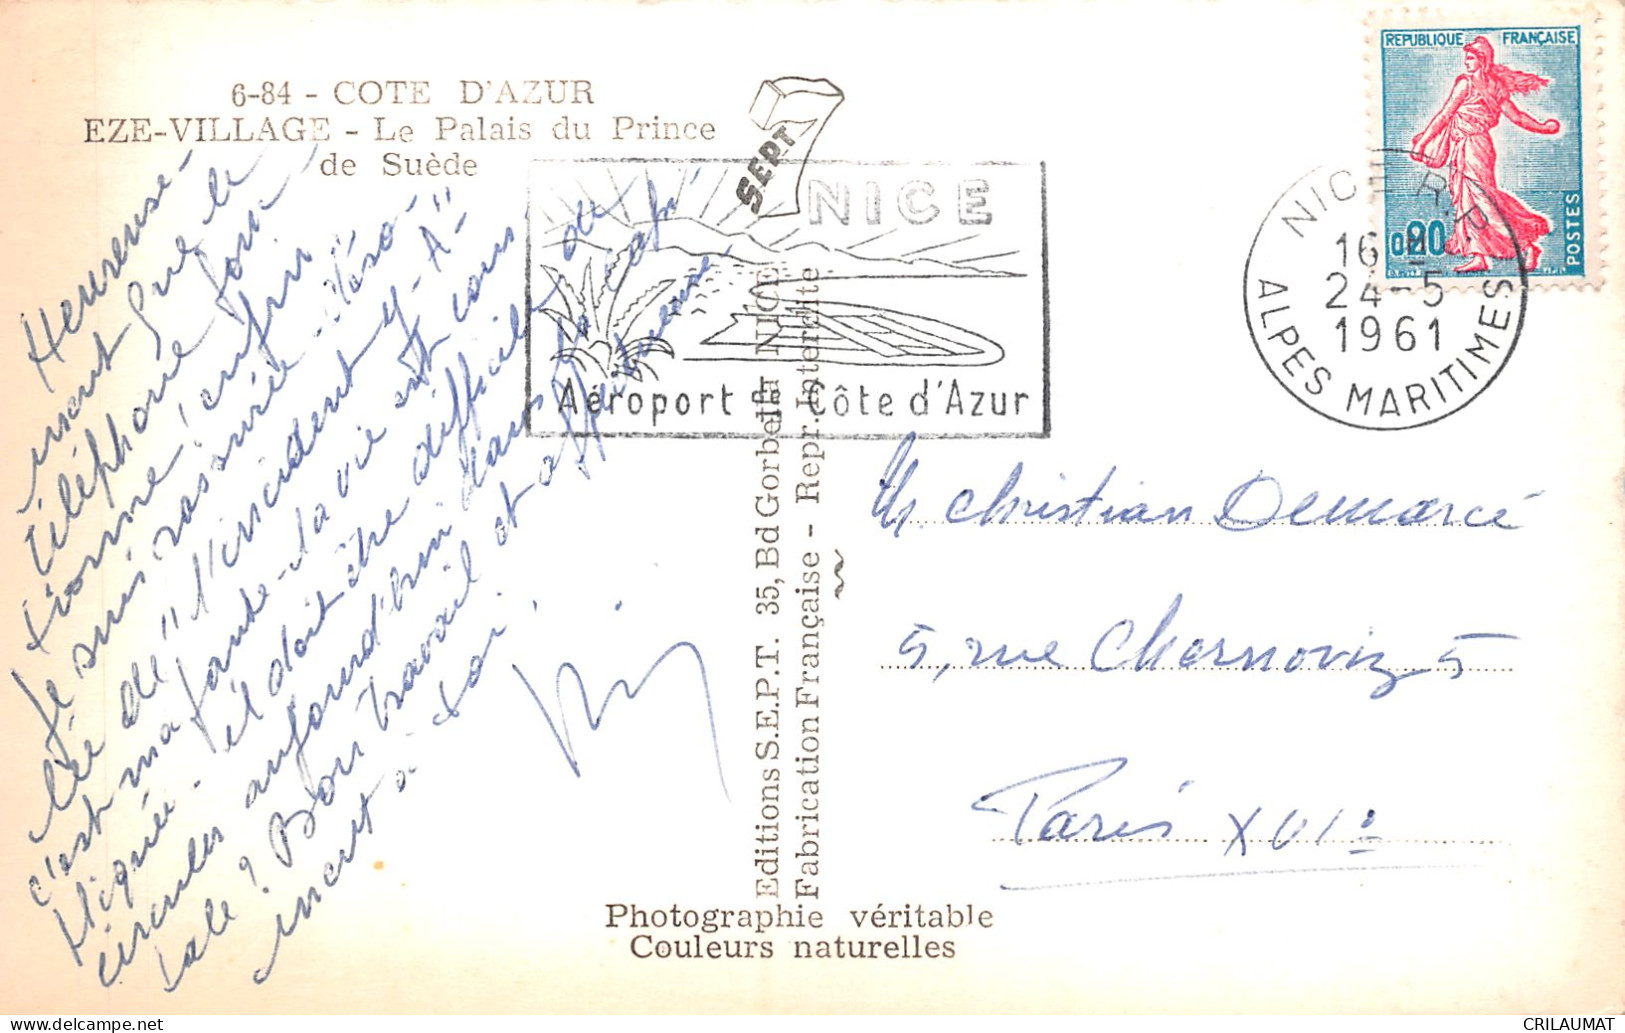 6-84 - COTE D'AZUR
EZE-VILLAGE - Le Palais du Prince
de Suède
Heureuse-
ment que le
téléphone fonc-
tionne, enfin
je suis rassurée - déso-
lée de "l'incident y-A"
c'est ma faute - la vie est cous
pliquée - il doit être difficile de
circuler aujourd'hui dans la capi
tale ? Bon travail et affectueuse
ment à toi
SEPT
NICE
Aéroport Côte d'Azur
REPUBLIQUE FRANÇAISE
0,20
POSTES
NICE R.P.
16 H
24-5
1961
ALPES MARITIMES
Editions S.E.P.T. 35, Bd Gorbella NICE
Fabrication Française - Repr. Interdite
Mr Christian Demarcé
5, rue Chernoviz 5
Paris XVIe
Photographie véritable
Couleurs naturelles
CRILAUMAT